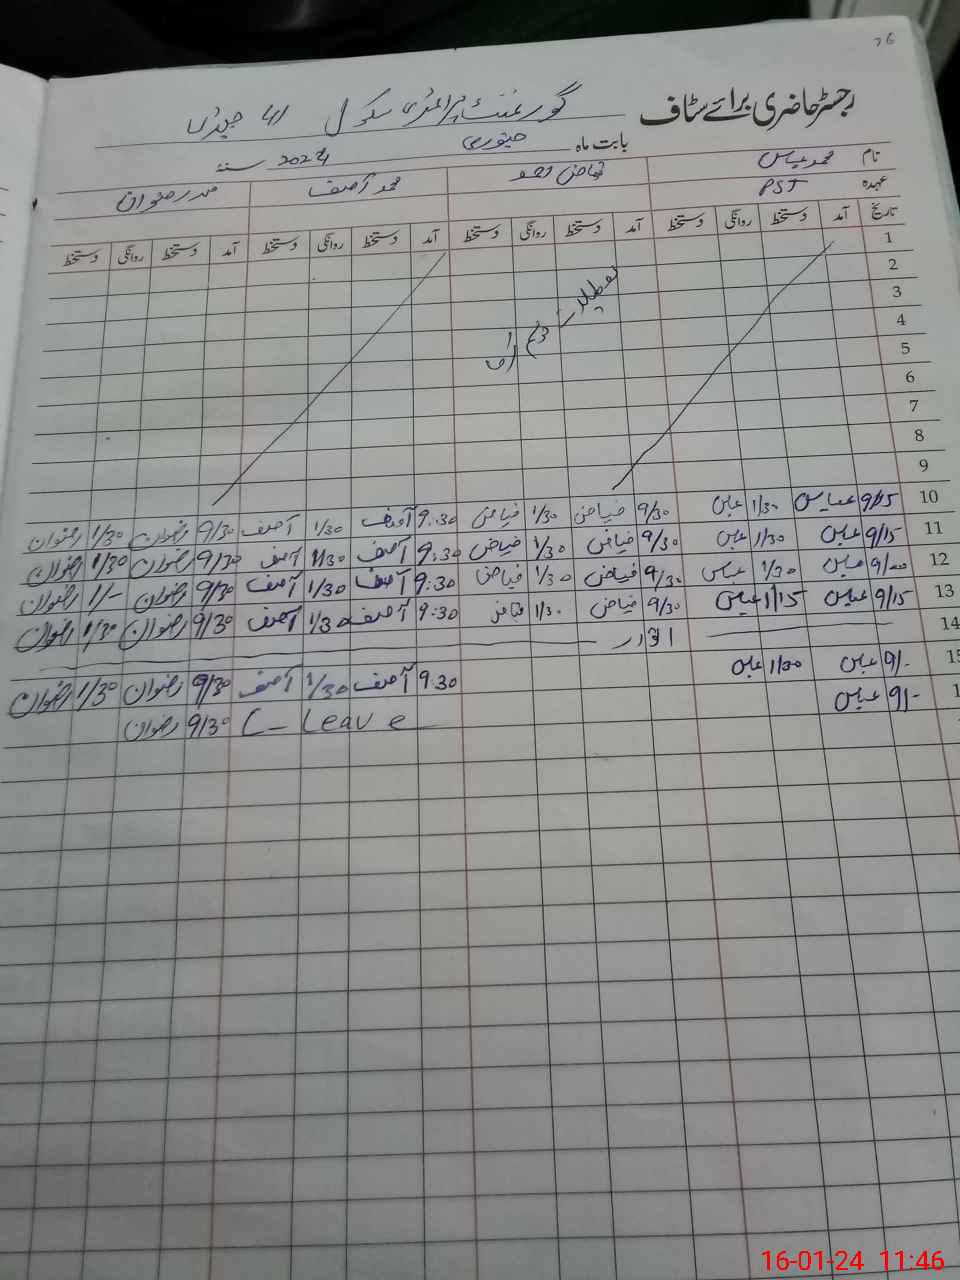 26
رجسٹر حاضری برائے سٹاف گورنمنٹ پرائمری سکول
بابت ماہ جنوری 2024
نام محمد عباس محمد آصف محمد رضوان
عہدہ PST
تاریخ آمد دستخط روانگی دستخط آمد دستخط روانگی دستخط آمد دستخط روانگی دستخط آمد دستخط روانگی دستخط
1
2
3
4
5
6
7
8
9
10 9/15 عباس 1/30 عباس 9/30 فیاض 1/30 فیاض 9:30 آصف 1/30 آصف 9/30 رضوان 1/30 رضوان
11 9/15 عباس 1/30 عباس 9/30 فیاض 1/30 فیاض 9:30 آصف 1/30 آصف 9/30 رضوان 1/30 رضوان
12 9/00 عباس 1/30 عباس 9/30 فیاض 1/30 فیاض 9:30 آصف 1/30 آصف 9/30 رضوان 1/- رضوان
13 9/15 عباس 1/15 عباس 9/30 فیاض 1/30 فیاض 9:30 آصف 1/30 آصف 9/30 رضوان 1/30 رضوان
14 اتوار
15 9/- عباس 1/30 عباس 9:30 آصف 1/30 آصف 9/30 رضوان 1/30 رضوان
9/- عباس C-Leave 9/30 رضوان
16-01-24 11:46